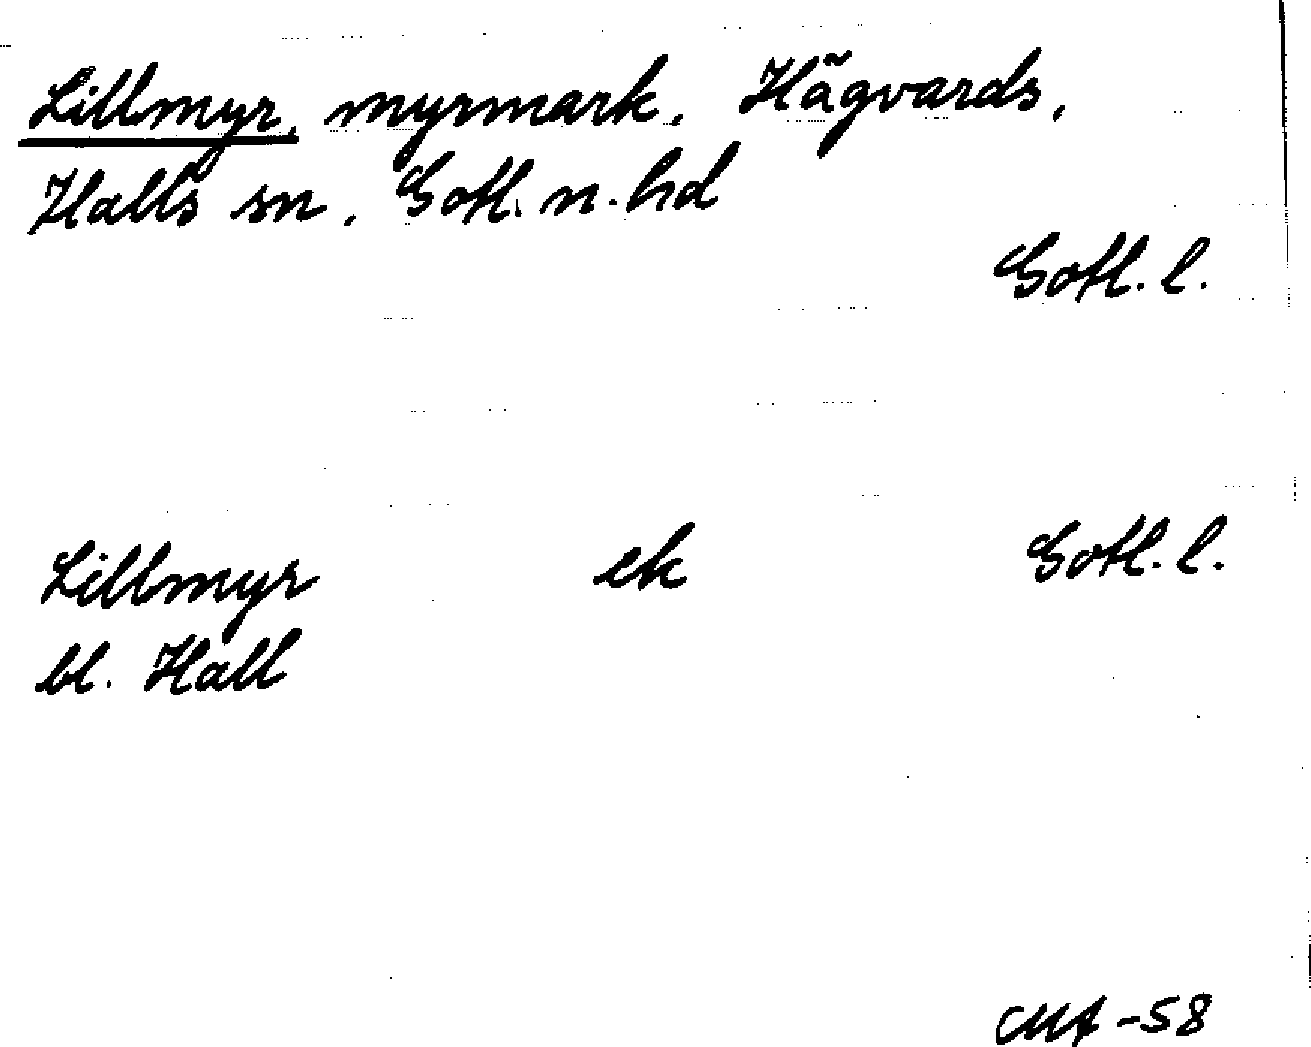 Lillmyr, myrmark, Hägvards,
Halls sn, Gotl. n. hd
Gotl. l.
Lillmyr ek Gotl. l.
bl. Hall
MA -58